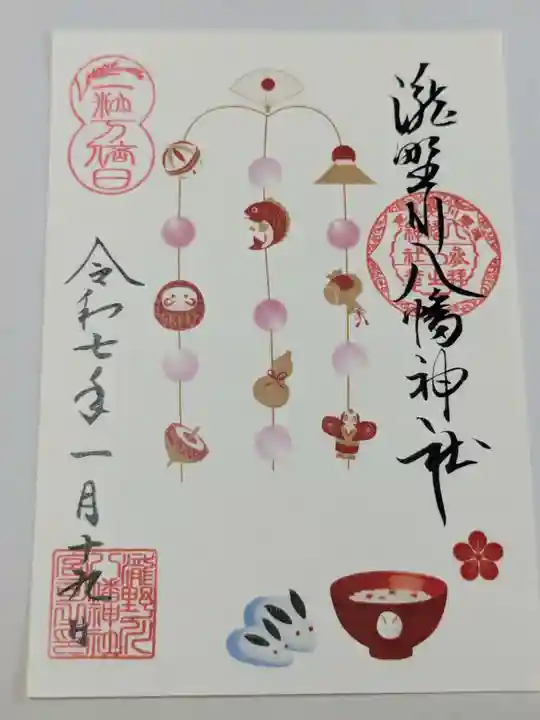 瀧野川八幡神社
一粒万倍日
令和七年一月十九日
瀧野川
八幡神社